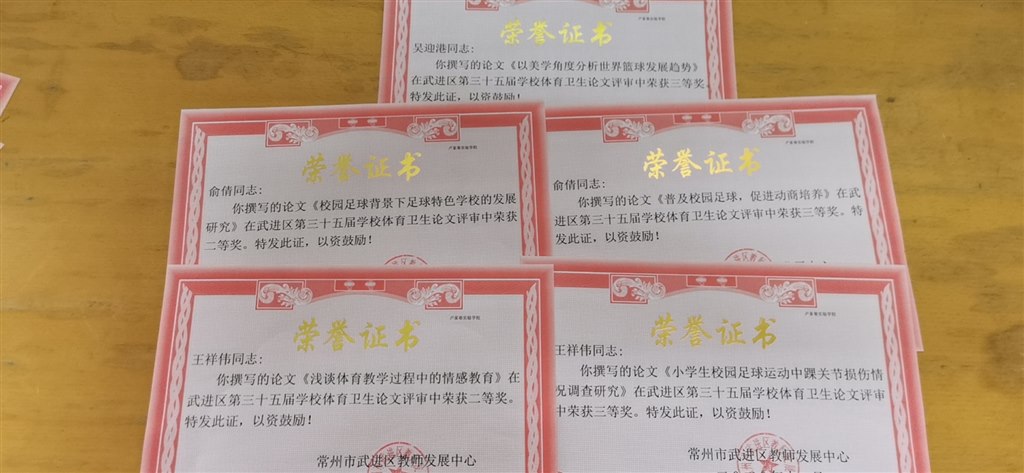 荣誉证书
吴迎港同志：
你撰写的论文《以美学角度分析世界篮球发展趋势》
在武进区第三十五届学校体育卫生论文评审中荣获三等奖。
特发此证，以资鼓励！
荣誉证书
俞倩同志：
你撰写的论文《校园足球背景下足球特色学校的发展
研究》在武进区第三十五届学校体育卫生论文评审中荣获
二等奖。特发此证，以资鼓励！
荣誉证书
俞倩同志：
你撰写的论文《普及校园足球，促进动商培养》在武
进区第三十五届学校体育卫生论文评审中荣获三等奖。特
发此证，以资鼓励！
荣誉证书
王祥伟同志：
你撰写的论文《浅谈体育教学过程中的情感教育》在
武进区第三十五届学校体育卫生论文评审中荣获二等奖。
特发此证，以资鼓励！
常州市武进区教师发展中心
荣誉证书
王祥伟同志：
你撰写的论文《小学生校园足球运动中踝关节损伤情
况调查研究》在武进区第三十五届学校体育卫生论文评审
中荣获三等奖。特发此证，以资鼓励！
常州市武进区教师发展中心